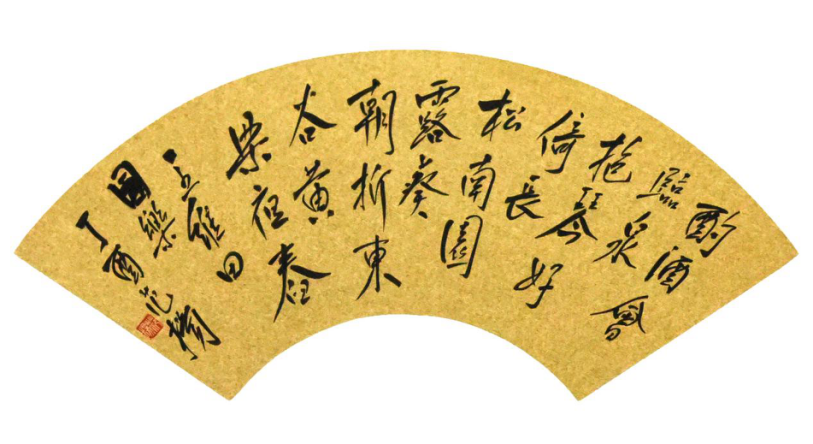 酌酒會
臨泉
抱琴好
倚長
松南園
露葵
朝折東
谷黃
粱夜舂
王維田
園樂
丁酉范揚